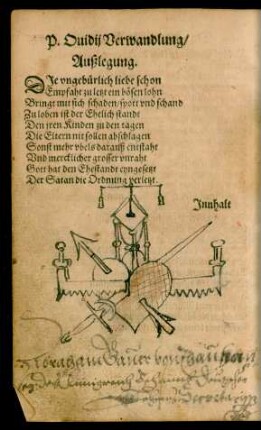 P. Ouidij Verwandlung/
Außlegung.
DIe vngebürlich liebe schon
Empfaht zu letzt ein bösen lohn
Bringt mit sich schaden/spott vnd schand
Zu loben ist der Ehelich standt
Den jren Kinden zu den tagen
Die Eltern nit sollen abschlagen
Sonst mehr vbels darauß entstaht
Vnd mercklicher grosser vnraht
Gott hat den Ehestandt eyngesetzt
Der Satan die Ordnung verletzt.
Innhalt
Abraham Saur von
Secretary